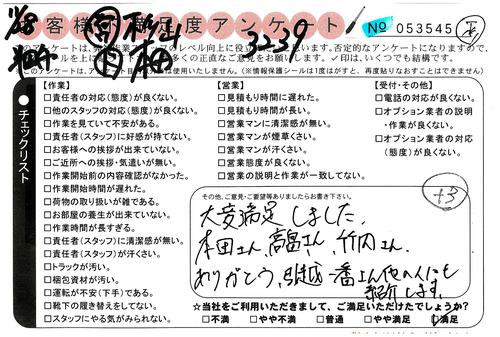 お客様不満足度アンケート
№ 053545
3239
チェックリスト
【作業】
□責任者の対応(態度)が良くない。
□他のスタッフの対応(態度)が良くない。
□作業を見ていて不安がある。
□責任者(スタッフ)に好感が持てない。
□お客様への挨拶が出来ていない。
□ご近所への挨拶・気遣いが無い。
□作業開始前の内容確認がなかった。
□作業開始時間が遅れた。
□荷物の取り扱いが雑である。
□お部屋の養生が出来ていない。
□作業時間が長すぎる。
□責任者(スタッフ)に清潔感が無い。
□責任者(スタッフ)が汗くさい。
□トラックが汚い。
□梱包資材が汚い。
□運転が不安(下手)である。
□靴下の履き替えをしてない。
□スタッフにやる気がみられない。
【営業】
□見積もり時間に遅れた。
□見積もり時間が長い。
□営業マンに清潔感が無い。
□営業マンが煙草くさい。
□営業マンが汗くさい。
□営業態度が良くない。
□営業の説明と作業が一致してない。
【受付・その他】
□電話の対応が良くない。
□オプション業者の説明
・作業が良くない。
□オプション業者の対応
(態度)が良くない。
その他、ご意見・ご要望等ありましたらお書き下さい。
+3
大変満足しました。
本田さん、高畠さん、竹内さん。
ありがとう。引越一番さん他の人にも
紹介します。
☆当社をご利用いただきまして、ご満足いただけたでしょうか?
□不満 □やや不満 □普通 □やや満足 □満足